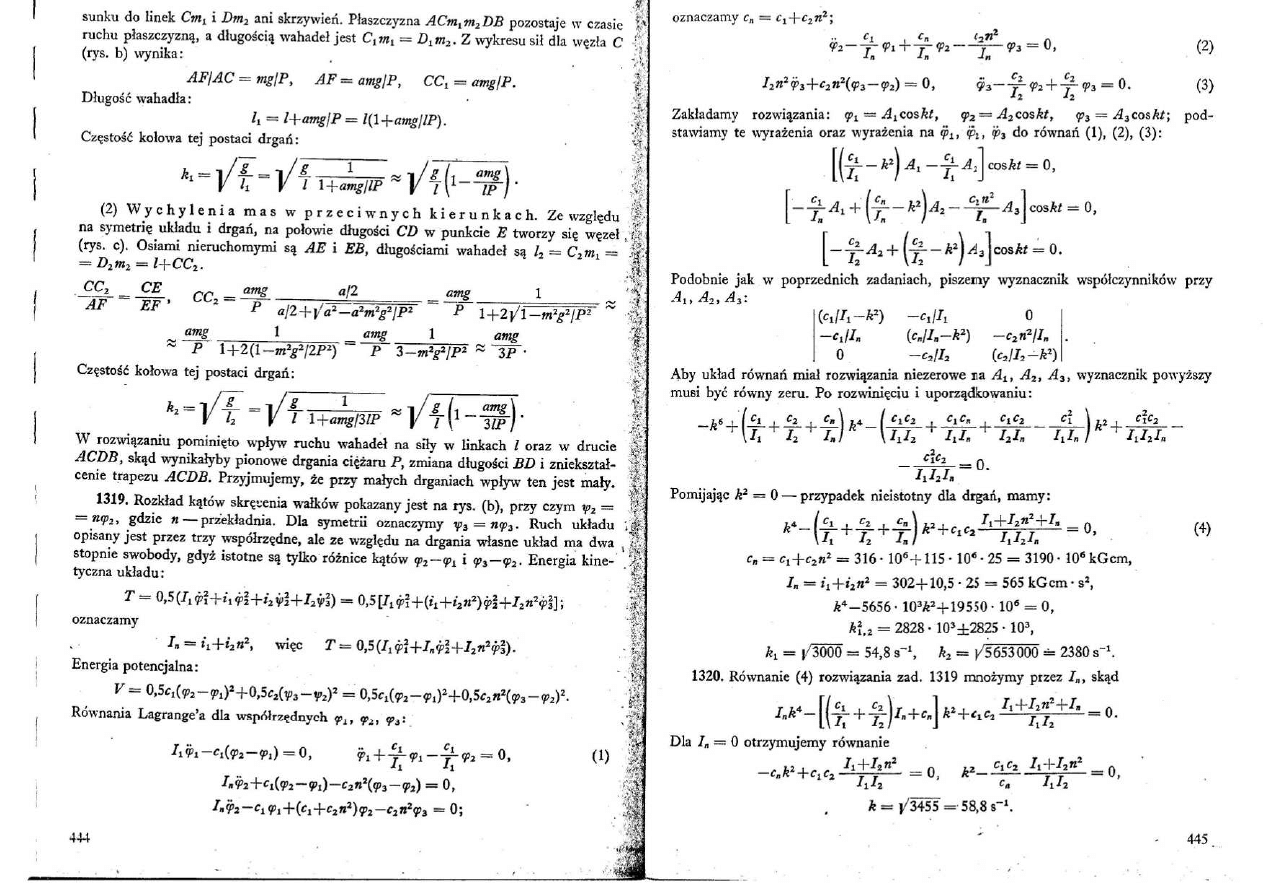 sunku do linek Cm₁ i Dm₂ ani skrzywień. Płaszczyzna ACm₁m₂DB pozostaje w czasie
ruchu płaszczyzną, a długością wahadeł jest C₁m₁ = D₁m₂. Z wykresu sił dla węzła C
(rys. b) wynika:
AF/AC = mg/P, AF = amg/P, CC₁ = amg/P.
Długość wahadła:
l₁ = l+amg/P = l(1+amg/lP).
Częstość kołowa tej postaci drgań:
k₁ = √(g/l₁) = √(g/l · 1/(1+amg/lP)) ≈ √(g/l (1−amg/lP)).
(2) Wychylenia mas w przeciwnych kierunkach. Ze względu
na symetrię układu i drgań, na połowie długości CD w punkcie E tworzy się węzeł
(rys. c). Osiami nieruchomymi są AE i EB, długościami wahadeł są l₂ = C₂m₁ =
= D₂m₂ = l+CC₂.
CC₂/AF = CE/EF, CC₂ = amg/P · (a/2)/(a/2+√(a²−a²m²g²/P²)) = amg/P · 1/(1+2√(1−m²g²/P²)) ≈
≈ amg/P · 1/(1+2(1−m²g²/2P²)) = amg/P · 1/(3−m²g²/P²) ≈ amg/3P.
Częstość kołowa tej postaci drgań:
k₂ = √(g/l₂) = √(g/l · 1/(1+amg/3lP)) ≈ √(g/l (1−amg/3lP)).
W rozwiązaniu pominięto wpływ ruchu wahadeł na siły w linkach l oraz w drucie
ACDB, skąd wynikałyby pionowe drgania ciężaru P, zmiana długości BD i zniekształ-
cenie trapezu ACDB. Przyjmujemy, że przy małych drganiach wpływ ten jest mały.
1319. Rozkład kątów skręcenia wałków pokazany jest na rys. (b), przy czym ψ₂ =
= nφ₂, gdzie n — przekładnia. Dla symetrii oznaczymy ψ₃ = nφ₃. Ruch układu
opisany jest przez trzy współrzędne, ale ze względu na drgania własne układ ma dwa
stopnie swobody, gdyż istotne są tylko różnice kątów φ₂−φ₁ i φ₃−φ₂. Energia kine-
tyczna układu:
T = 0,5(I₁φ̇₁²+i₁φ̇₂²+i₂ψ̇₂²+I₂ψ̇₃²) = 0,5[I₁φ̇₁²+(i₁+i₂n²)φ̇₂²+I₂n²φ̇₃²];
oznaczamy
Iₙ = i₁+i₂n², więc T = 0,5(I₁φ̇₁²+Iₙφ̇₂²+I₂n²φ̇₃²).
Energia potencjalna:
V = 0,5c₁(φ₂−φ₁)²+0,5c₂(ψ₃−ψ₂)² = 0,5c₁(φ₂−φ₁)²+0,5c₂n²(φ₃−φ₂)².
Równania Lagrange'a dla współrzędnych φ₁, φ₂, φ₃:
I₁φ̈₁−c₁(φ₂−φ₁) = 0, φ̈₁+c₁/I₁ φ₁−c₁/I₁ φ₂ = 0, (1)
Iₙφ̈₂+c₁(φ₂−φ₁)−c₂n²(φ₃−φ₂) = 0,
Iₙφ̈₂−c₁φ₁+(c₁+c₂n²)φ₂−c₂n²φ₃ = 0;
444
oznaczamy cₙ = c₁+c₂n²;
φ̈₂−c₁/Iₙ φ₁+cₙ/Iₙ φ₂−c₂n²/Iₙ φ₃ = 0, (2)
I₂n²φ̈₃+c₂n²(φ₃−φ₂) = 0, φ̈₃−c₂/I₂ φ₂+c₂/I₂ φ₃ = 0. (3)
Zakładamy rozwiązania: φ₁ = A₁coskt, φ₂ = A₂coskt, φ₃ = A₃coskt; pod-
stawiamy te wyrażenia oraz wyrażenia na φ̈₁, φ̈₁, φ̈₃ do równań (1), (2), (3):
[(c₁/I₁−k²)A₁−c₁/I₁ A₂]coskt = 0,
[−c₁/Iₙ A₁+(cₙ/Iₙ−k²)A₂−c₂n²/Iₙ A₃]coskt = 0,
[−c₂/I₂ A₂+(c₂/I₂−k²)A₃]coskt = 0.
Podobnie jak w poprzednich zadaniach, piszemy wyznacznik współczynników przy
A₁, A₂, A₃:
|(c₁/I₁−k²) −c₁/I₁ 0|
|−c₁/Iₙ (cₙ/Iₙ−k²) −c₂n²/Iₙ|.
|0 −c₂/I₂ (c₂/I₂−k²)|
Aby układ równań miał rozwiązania niezerowe na A₁, A₂, A₃, wyznacznik powyższy
musi być równy zeru. Po rozwinięciu i uporządkowaniu:
−k⁶+(c₁/I₁+c₂/I₂+cₙ/Iₙ)k⁴−(c₁c₂/I₁I₂+c₁cₙ/I₁Iₙ+c₁c₂/I₂Iₙ−c₁²/I₁Iₙ)k²+c₁²c₂/I₁I₂Iₙ−
−c₁²c₂/I₁I₂Iₙ = 0.
Pomijając k² = 0 — przypadek nieistotny dla drgań, mamy:
k⁴−(c₁/I₁+c₂/I₂+cₙ/Iₙ)k²+c₁c₂ (I₁+I₂n²+Iₙ)/I₁I₂Iₙ = 0, (4)
cₙ = c₁+c₂n² = 316 · 10⁶+115 · 10⁶ · 25 = 3190 · 10⁶ kGcm,
Iₙ = i₁+i₂n² = 302+10,5 · 25 = 565 kGcm · s²,
k⁴−5656 · 10³k²+19550 · 10⁶ = 0,
k²₁,₂ = 2828 · 10³±2825 · 10³,
k₁ = √3000 = 54,8 s⁻¹, k₂ = √5653000 ≐ 2380 s⁻¹.
1320. Równanie (4) rozwiązania zad. 1319 mnożymy przez Iₙ, skąd
Iₙk⁴−[(c₁/I₁+c₂/I₂)Iₙ+cₙ]k²+c₁c₂ (I₁+I₂n²+Iₙ)/I₁I₂ = 0.
Dla Iₙ = 0 otrzymujemy równanie
−cₙk²+c₁c₂ (I₁+I₂n²)/I₁I₂ = 0, k²−c₁c₂/cₙ (I₁+I₂n²)/I₁I₂ = 0,
k = √3455 = 58,8 s⁻¹.
445